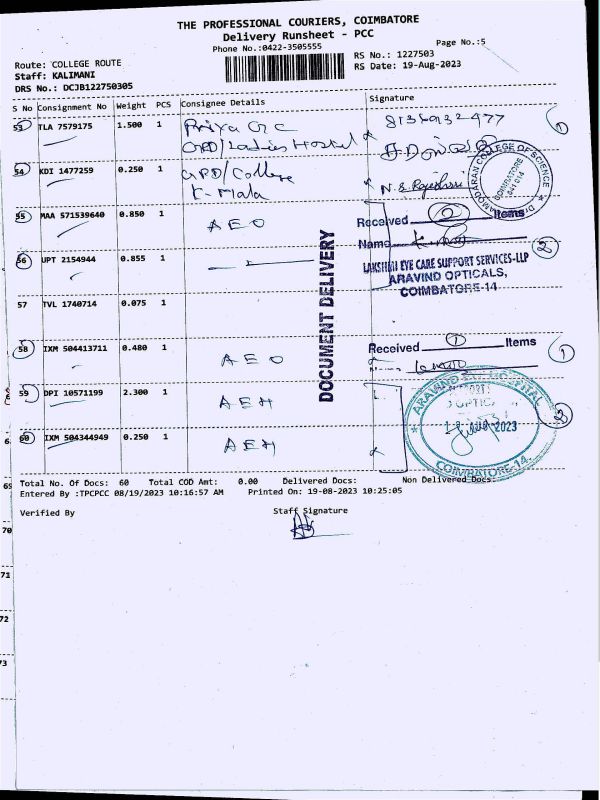 THE PROFESSIONAL COURIERS, COIMBATORE
Delivery Runsheet - PCC
Phone No.:0422-3505555
Page No.:5
Route: COLLEGE ROUTE
Staff: KALIMANI
DRS No.: DCJB122750305
RS No.: 1227503
RS Date: 19-Aug-2023
S No Consignment No Weight PCS Consignee Details Signature
53 TLA 7579175 1.500 1 Priya
GRD/Ladies Hostel
54 KDI 1477259 0.250 1 GRD/College
K-Mala
DAMODARAN COLLEGE OF SCIENCE
COIMBATORE
641 014
55 MAA 571539640 0.850 1 AEO
Received 2 Items
Name
56 UPT 2154944 0.855 1
2
LAKSHMI EYE CARE SUPPORT SERVICES-LLP
ARAVIND OPTICALS,
COIMBATORE-14
57 TVL 1740714 0.075 1
DOCUMENT DELIVERY
58 IXM 504413711 0.480 1 AEO
Received 1 Items
1
59 DPI 10571199 2.300 1 AEH
60 IXM 504344949 0.250 1 AEH
ARAVIND EYE HOSPITAL
2023
COIMBATORE-14.
Total No. Of Docs: 60 Total COD Amt: 0.00 Delivered Docs: Non Delivered Docs:
Entered By :TPCPCC 08/19/2023 10:16:57 AM Printed On: 19-08-2023 10:25:05
Verified By Staff Signature
70
71
72
73